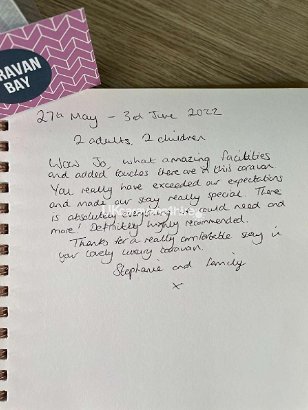 ARAVAN
BAY
27th May - 3rd June 2022
2 adults, 2 children
Wow Jo, what amazing facilities
and added touches there are in this caravan
You really have exceeded our expectations
and made our stay really special. There
is absolutely everything you could need and
more! Definitely highly recommended.
Thanks for a really comfortable stay in
your lovely luxury caravan.
Stephanie and family
x